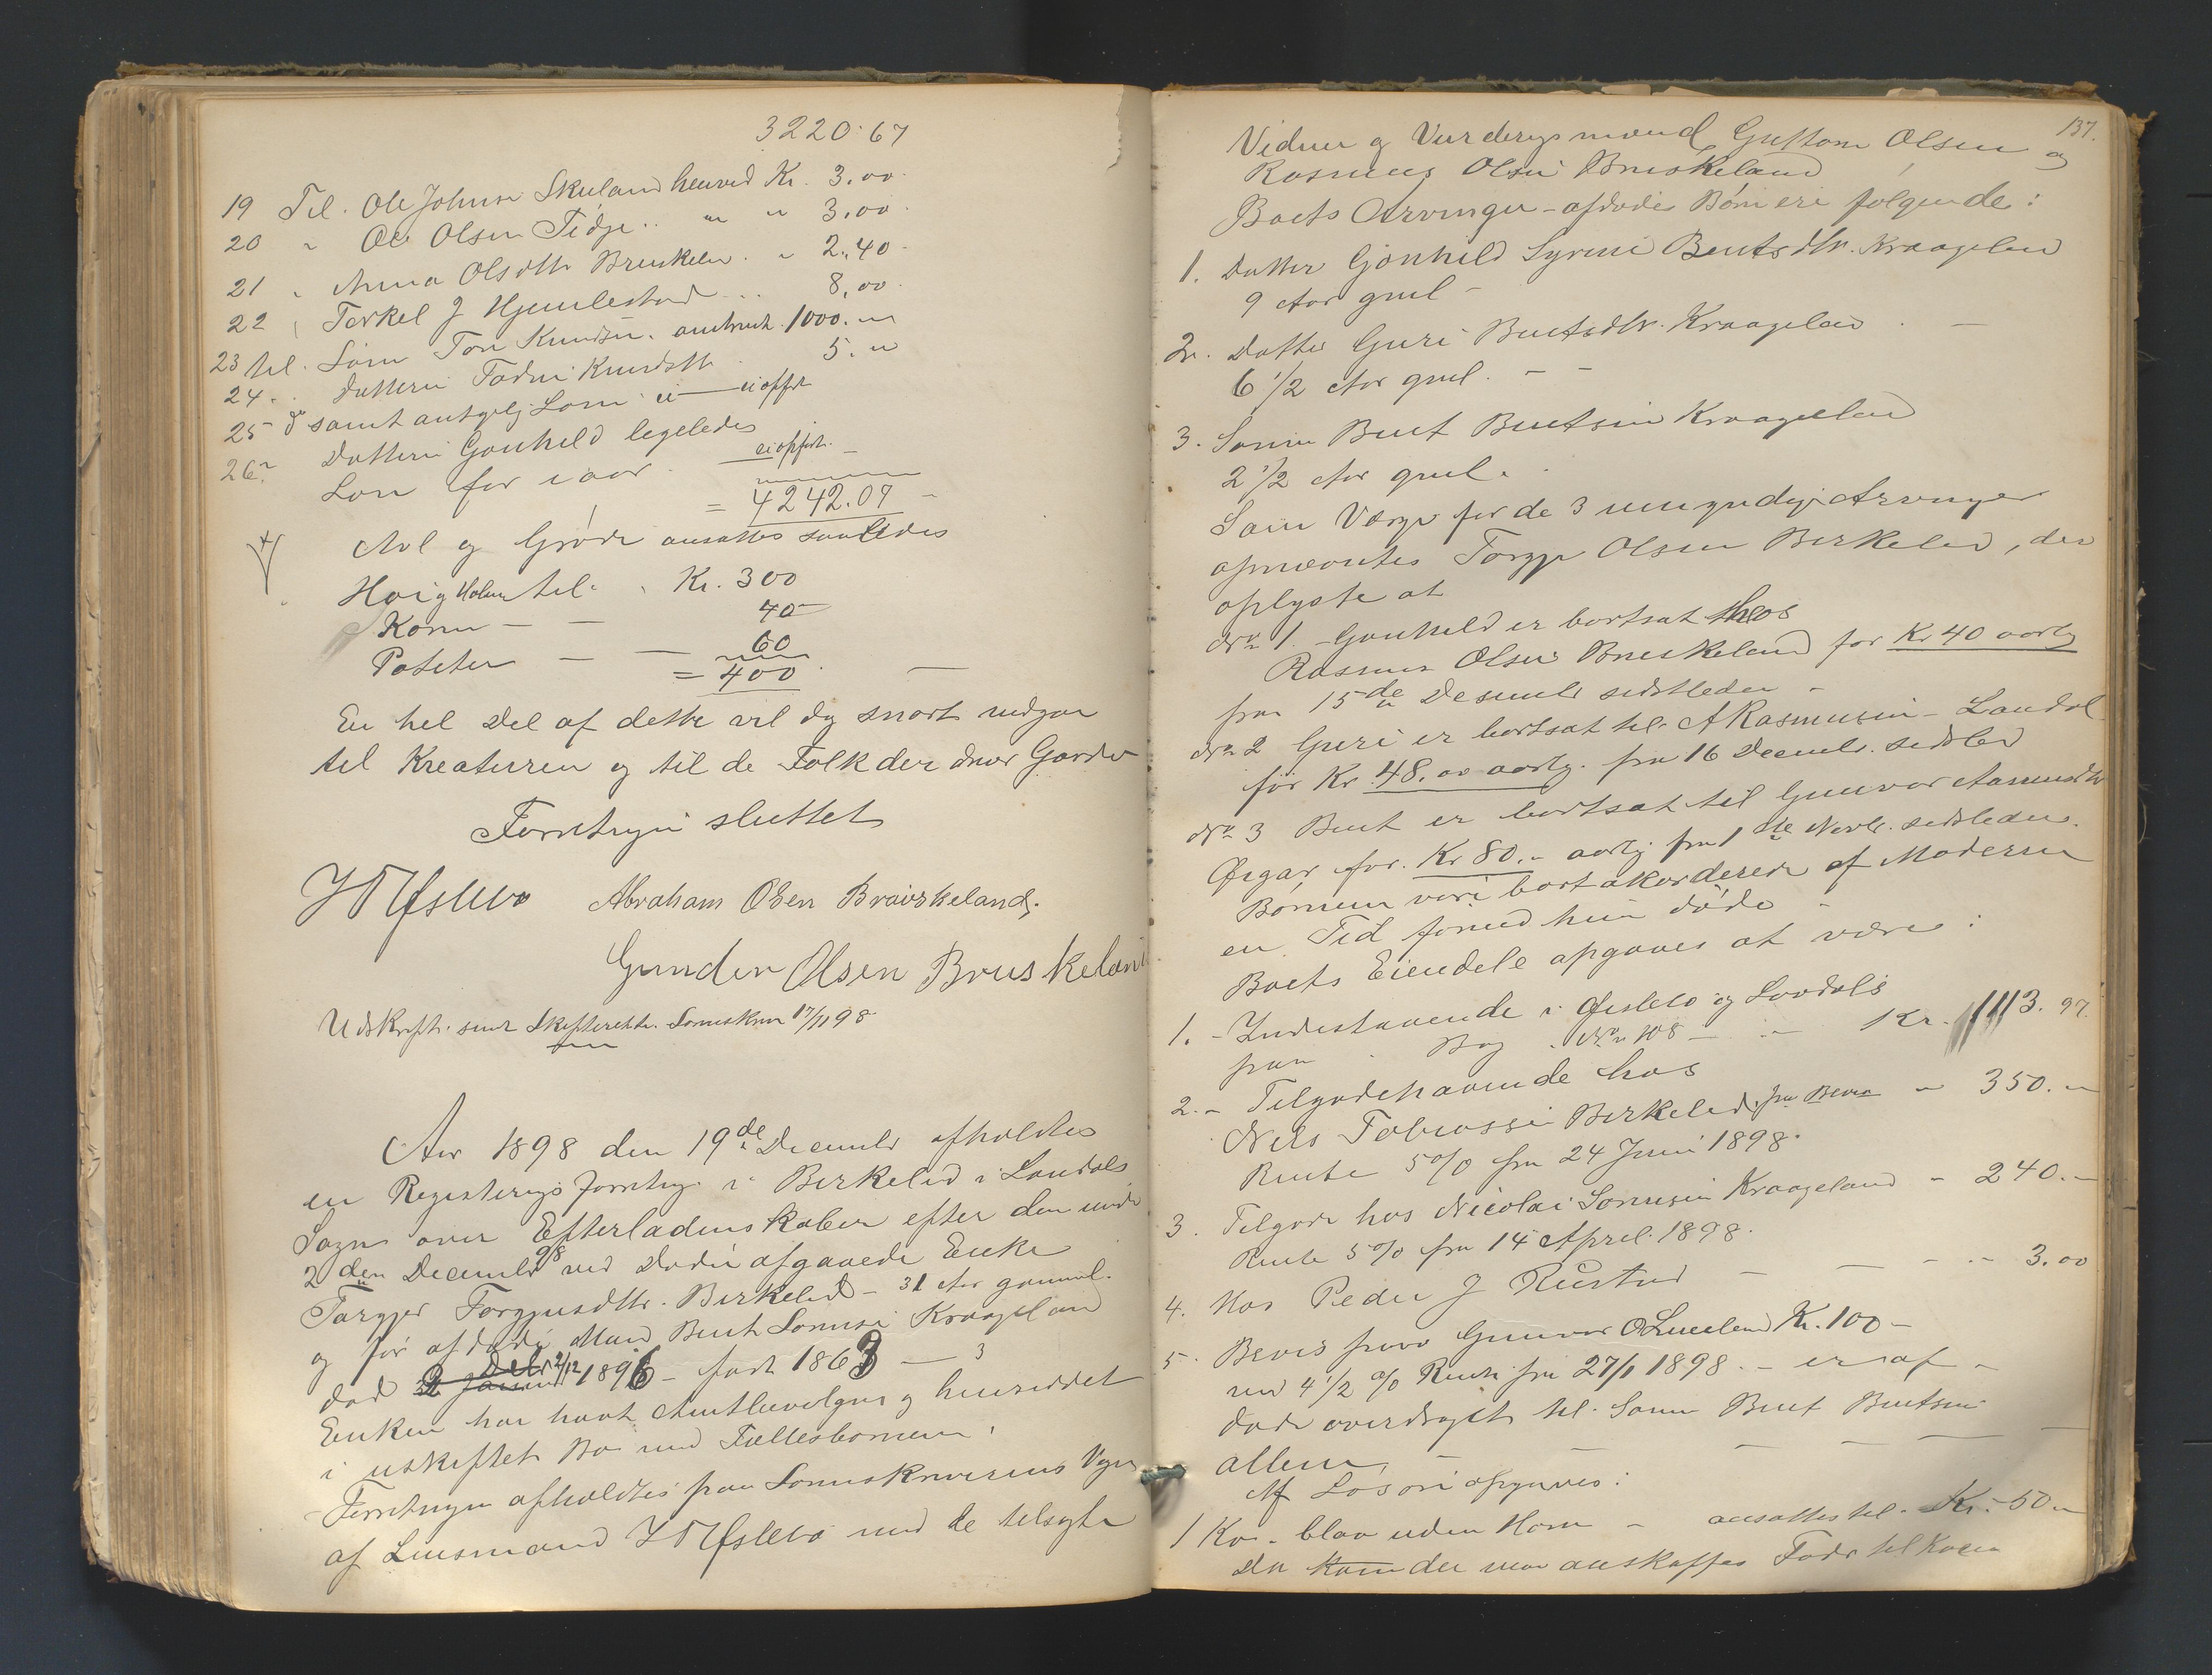 3220.67
19 Til Ole Johnsen Skuland henved Kr. 3.00
20 " Ole Olsen Tidje .. " " 3.00
21 " Anna Olsdtr Bruskeland . " 2.40
22 Torkel J Hjemlestad ... 8.00
23 til Sønn Tore Knudsen 1000.
24 . Datteren Knudsdtr 5. "
25 samt Lønn
26 Datteren Gonhild ligeledes
Løn for i aar
= 4242.07
Avl og Grøde ansattes saaledes
Høi og Halm til . Kr. 300
Korn — — 40
Poteter — — 60
= 400
En hel Del af dette vil dog snart medgaa
til Kreaturen og til de Folk der driver Garden
Forretnigen sluttet
Abraham Olsen Bruskeland.
Gunder Olsen Bruskeland
Udskrift sendt Skifteretten 17/11 98
Aar 1898 den 19de Decembr afholdtes
en Registerings forretng. i Birkelid i Laudals
Sogn over Efterladenskaber efter den under
2den Decembr 98 ved Døden afgaaede Enke
Targjer Torgjusdtr. Birkelid — 31 Aar gammel.
og før afdøde Mand Bent Sørensen Kraageland
død 2/12 1896 — født 1863
Enken har havt Amtbevilgning og hensiddet
i uskiftet Bo med Fællesbørnene.
Forretnigen afholdtes paa Sorenskriverens Vegne
af Lensmand med de tilsagte
137.
Vidner og Vurderigsmænd Guttorm Olsen og
Rasmus Olsen Bruskeland
Boets Arvinger – afdødes Børn ere følgende:
1. Datter Gonhild Syrine Bentsdtr. Kraageland
9 Aar gml –
2. Datter Guri Bentsdtr. Kraageland . –
6 1/2 Aar gml. – –
3. Sønnen Bent Bentsen Kraageland
2 1/2 Aar gml.
Som Værge for de 3 umyndige Arvinger
opnævntes Torgje Olsen Birkeland, der
oplyste at
No 1 – Gonhild er bortsat hos
Rasmus Olsen Bruskeland for Kr 40 aarlig
fra 15de Desembr sidstleden –
No 2 Guri er bortsat til A Rasmussen – Laudal
for Kr 48.00 aarlg. fra 16 Decembr. sidstled
No 3 Bent er bortsat til Gunvor Aamundsdtr
Øigar for Kr 80." aarlg fra 1ste Novbr. sidstleden.
Børnene vare bortakorderede af Moderen
en Tid førend hun døde –
Boets Eiendele opgaves at være:
1. – Indestaaende i Øislebø og Laudals
paa Bog No 108 — " Kr. 1113.97
2. – Tilgodehavende hos
Nels Tobiassen Birkelid fra Bevis " 350. "
Rente 5% fra 24 Juni 1898.
3. Tilgode hos Nicolai Sørensen Kraageland " 240. –
Rente 5% fra 14 April 1898.
4. Hos Peder J Rustad — — – .– 3.00
5. Bevis fra Gunvor O Kr. 100 –
med 4 1/2 % Rente fra 27/1 1898. – er af –
døde overdraget til Sønnen Bent Bentsen
allene
Af Løsøre opgaves:
1 Ko – blaa uden Horn – ansattes til Kr. 50 "
Da der maa anskaffes Foder til Koen